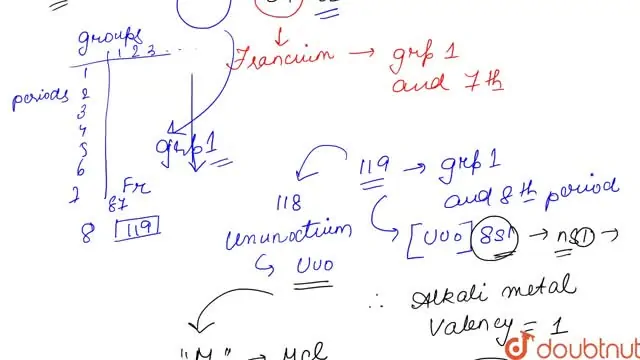 groups
1 2 3 ...
periods
1
2
3
4
5
6
7
Fr
87
8
119
grp 1
Francium → grp 1
and 7th
119 → grp 1
and 8th period
118
Ununoctium
Uuo
[Uuo] 8s1 → ns1 →
∴ Alkali metal
Valency = 1
"M" → MCl
doubtnut